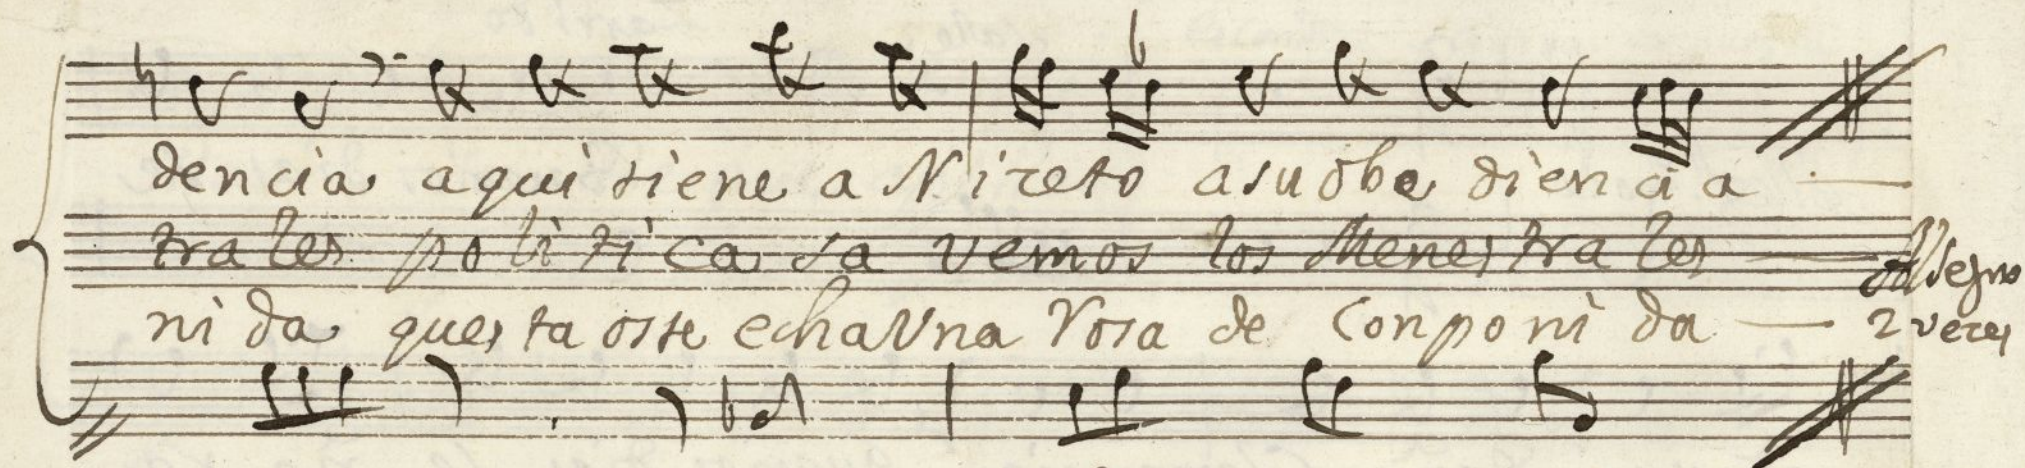 dencia aqui tiene a Nireto a su obe diencia
trales politica sa vemos los Menestrales Al Segno
nida questa oste echa Una Rosa de Conponida 2 veces